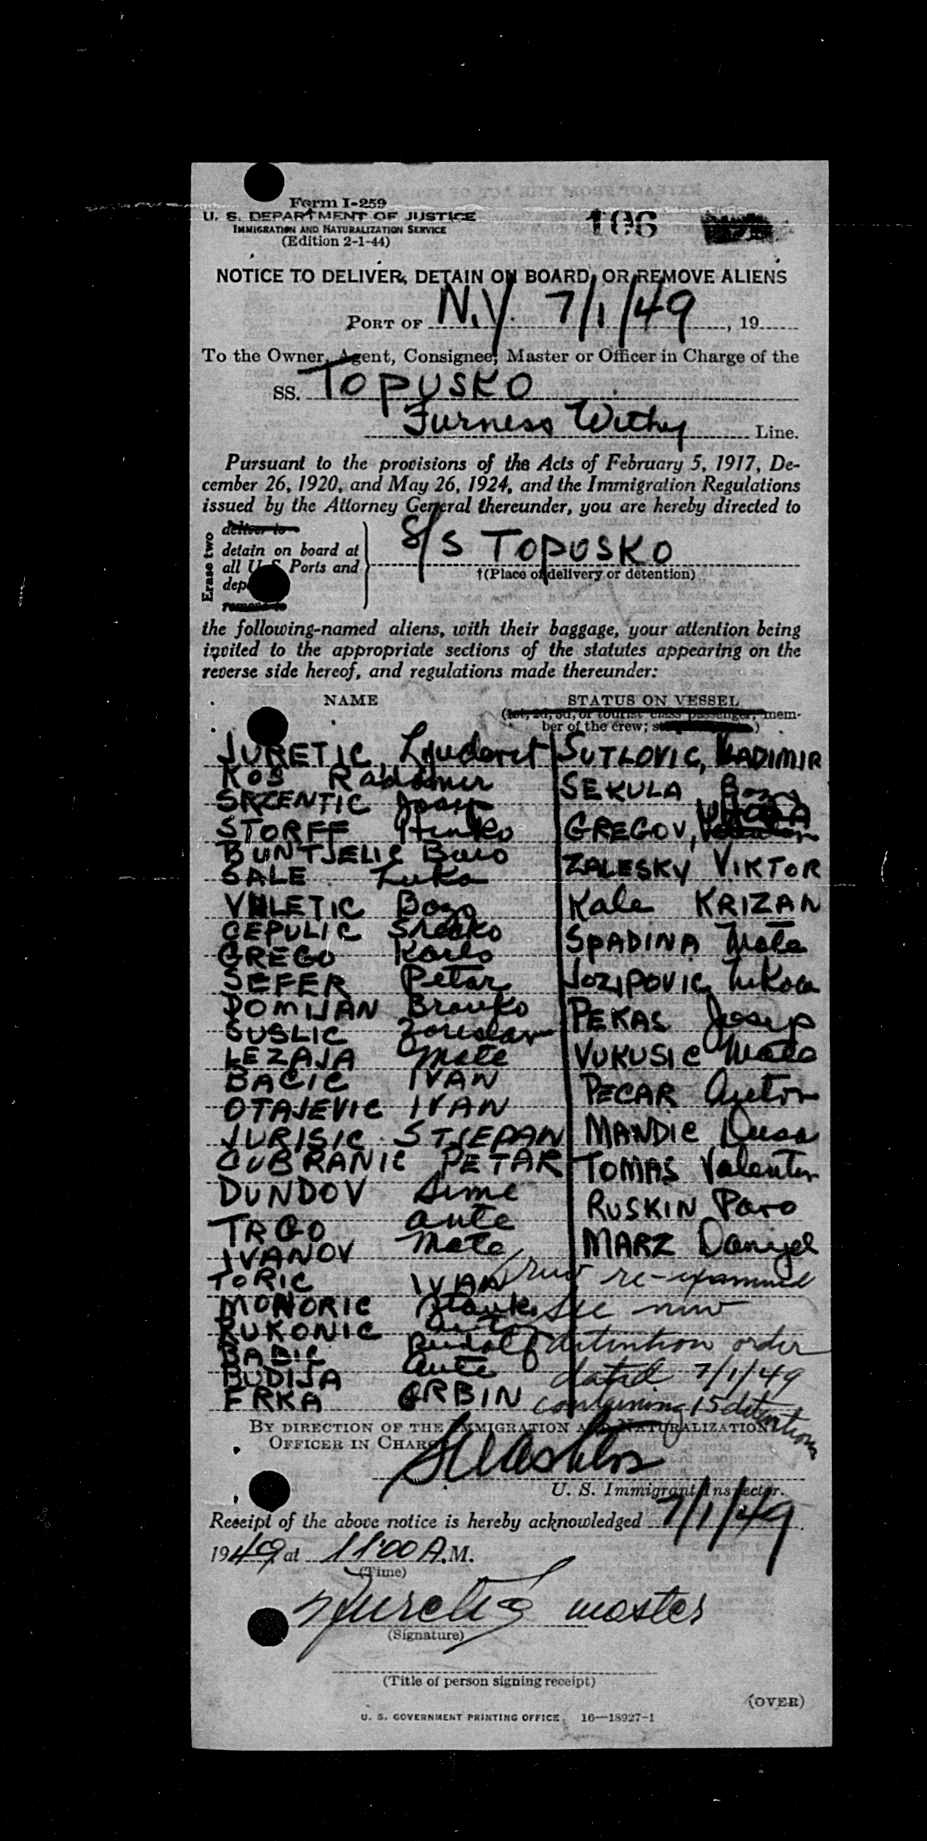 Form I-259
U. S. DEPARTMENT OF JUSTICE
IMMIGRATION AND NATURALIZATION SERVICE
(Edition 2-1-44)
106
NOTICE TO DELIVER, DETAIN ON BOARD, OR REMOVE ALIENS
PORT OF N.Y. 7/1/49, 19
To the Owner, Agent, Consignee, Master or Officer in Charge of the
SS. TOPUSKO
Furness Withy Line.
Pursuant to the provisions of the Acts of February 5, 1917, De-
cember 26, 1920, and May 26, 1924, and the Immigration Regulations
issued by the Attorney General thereunder, you are hereby directed to
Erase two
deliver to
detain on board at
all U. S. Ports and
remove to
S/S TOPUSKO
†(Place of delivery or detention)
the following-named aliens, with their baggage, your attention being
invited to the appropriate sections of the statutes appearing on the
reverse side hereof, and regulations made thereunder:
NAME
JURETIC, Ljudevit
KOS Radomir
SRZENTIC Josip
STORFF Hinko
BUNTJELIC Bozo
SALE Luka
VULETIC Bozo
CEPULIC Srecko
GREGO Karlo
SEFER Petar
DOMIJAN Branko
SUSLIC Zorislav
LEZAJA Mate
BACIC IVAN
OTAJEVIC IVAN
JURISIC STJEPAN
CUBRANIC PETAR
DUNDOV Sime
TRGO Ante
IVANOV Mate
TORIC IVAN
MONORIC Stanko
KUKONIC
BABIC Rudolf
BUDIJA Ante
FRKA GRBIN
STATUS ON VESSEL
(1st, 2d, 3d, or tourist class passenger; mem-
ber of the crew;
SUTLOVIC, VLADIMIR
SEKULA Bozo
GREGOV,
ZALESKY VIKTOR
Kale KRIZAN
SPADINA Mate
JOZIPOVIC Nikola
PEKAS Josip
VUKUSIC Mate
PECAR Anton
MANDIC Dusa
TOMAS Valentin
RUSKIN Pavo
MARZ Danijel
crew re-examined
see new
detention order
dated 7/1/49
containing 15 detentions
BY DIRECTION OF THE IMMIGRATION AND NATURALIZATION
OFFICER IN CHARGE
U. S. Immigrant Inspector.
Receipt of the above notice is hereby acknowledged 7/1/49
1949 at 11:00 A.M.
(Time)
Juretić master
(Signature)
(Title of person signing receipt)
(OVER)
U. S. GOVERNMENT PRINTING OFFICE 16—18927-1